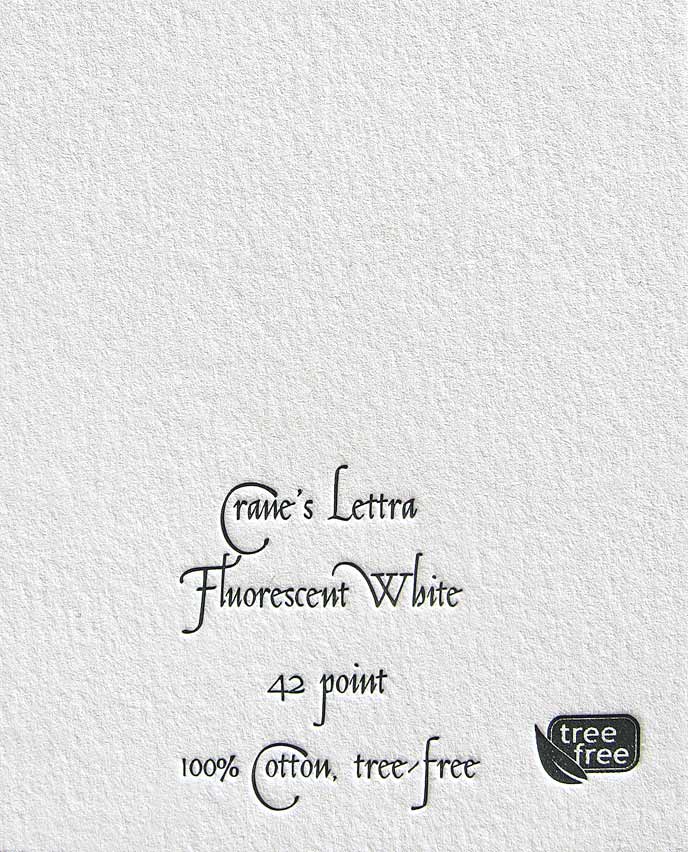 Crane's Lettra
Fluorescent White
42 point
100% Cotton, tree-free
tree
free